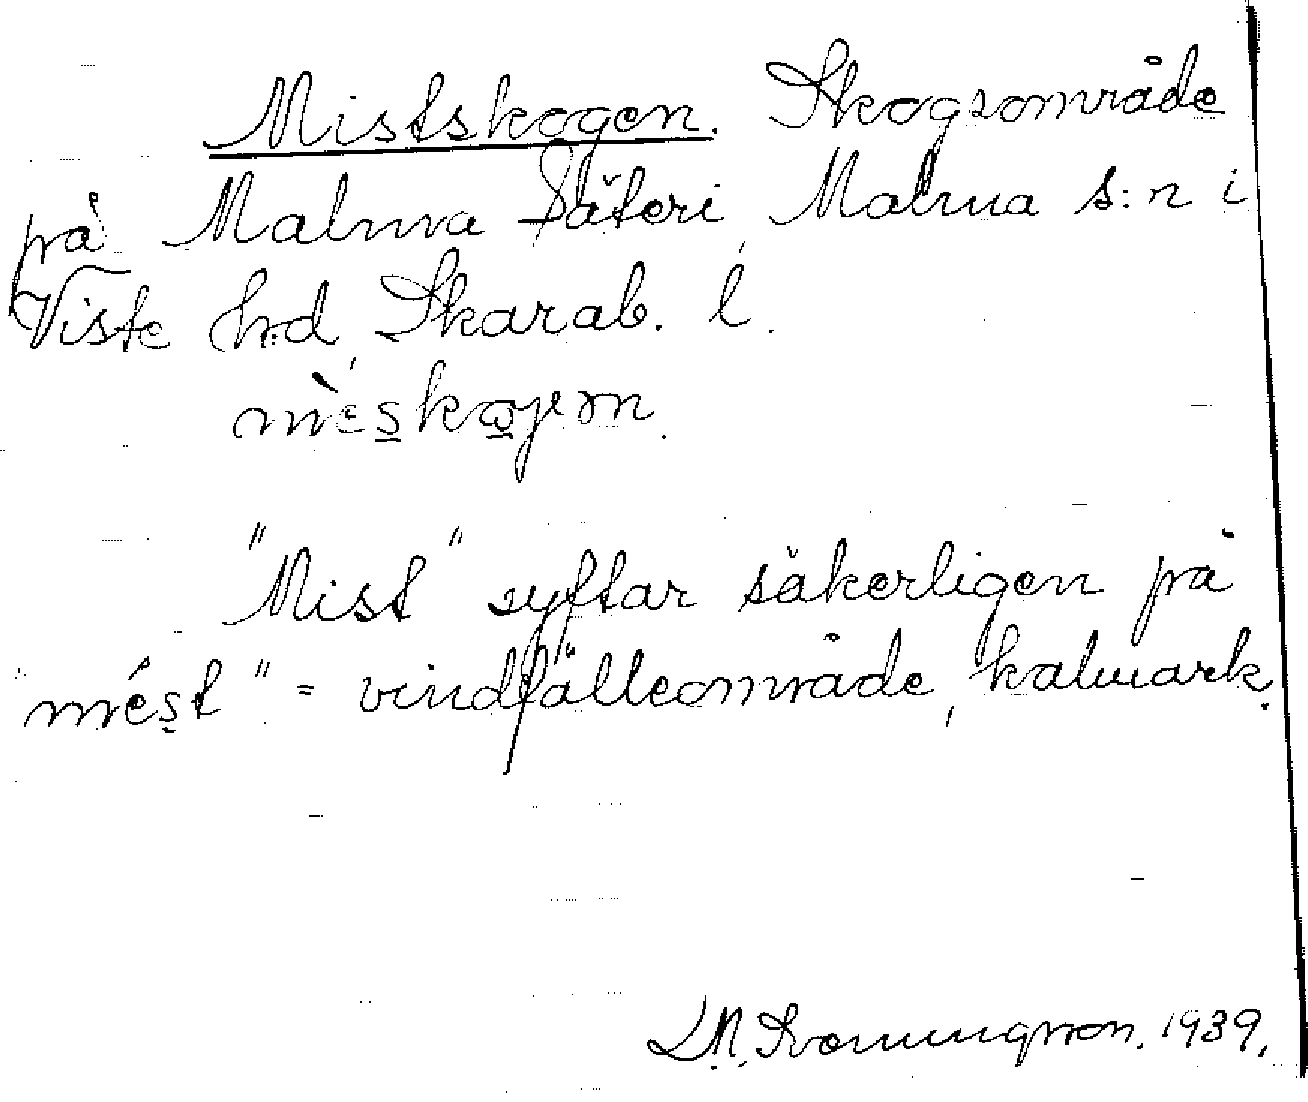 Mistskogen. Skogsområde
på Malma Säteri, Malma s:n i
Viste hd, Skarab. l.
mèskogen.
"Mist" syftar säkerligen på
"mést" = vindfälleområde, kalmark.
L.N. 1939.